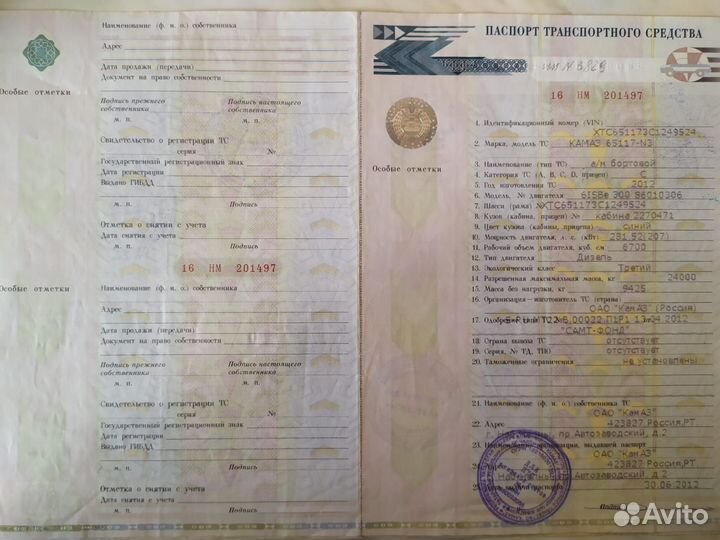 Особые отметки
Наименование (ф. и. о.) собственника
Адрес
Дата продажи (передачи)
Документ на право собственности
Подпись прежнего собственника
Подпись настоящего собственника
М. П.
М. П.
Свидетельство о регистрации ТС
серия №
Государственный регистрационный знак
Дата регистрации
Выдано ГИБДД
М. П.
Подпись
Отметка о снятии с учета
Дата снятия с учета
М. П.
Подпись
16 НМ 201497
Особые отметки
Наименование (ф. и. о.) собственника
Адрес
Дата продажи (передачи)
Документ на право собственности
Подпись прежнего собственника
Подпись настоящего собственника
М. П.
М. П.
Свидетельство о регистрации ТС
серия №
Государственный регистрационный знак
Дата регистрации
Выдано ГИБДД
М. П.
Подпись
Отметка о снятии с учета
Дата снятия с учета
М. П.
Подпись
ПАСПОРТ ТРАНСПОРТНОГО СРЕДСТВА
16 НМ 201497
Особые отметки
1. Идентификационный номер (VIN) XTC651173C1249524
2. Марка, модель ТС КАМАЗ 65117-N3
3. Наименование (тип ТС) а/м бортовой
4. Категория ТС (А, В, С, D, прицеп) C
5. Год изготовления ТС 2012
6. Модель, № двигателя 6ISBe 300 86010306
7. Шасси (рама) № XTC651173C1249524
8. Кузов (кабина, прицеп) № кабина 2270471
9. Цвет кузова (кабины, прицепа) синий
10. Мощность двигателя, л. с. (кВт) 281.52(207)
11. Рабочий объем двигателя, куб. см 6700
12. Тип двигателя Дизель
13. Экологический класс Третий
14. Разрешенная максимальная масса, кг 24000
15. Масса без нагрузки, кг 9425
16. Организация – изготовитель ТС (страна)
ОАО "КамАЗ" (Россия)
17. Одобрение типа ТС № 2012
"САМТ-ФОНД"
18. Страна вывоза ТС отсутствует
19. Серия, № ТД, ТПО отсутствует
20. Таможенные ограничения не установлены
21. Наименование (ф. и. о.) собственника ТС
ОАО "КамАЗ"
22. Адрес 423827 Россия,РТ,
пр.Автозаводский, д.2
23. Наименование организации, выдавшей паспорт
ОАО "КамАЗ"
24. Адрес 423827 Россия,РТ,
Автозаводский, д.2
25. Дата выдачи паспорта 30.06.2012
М. П.
Подпись
Avito